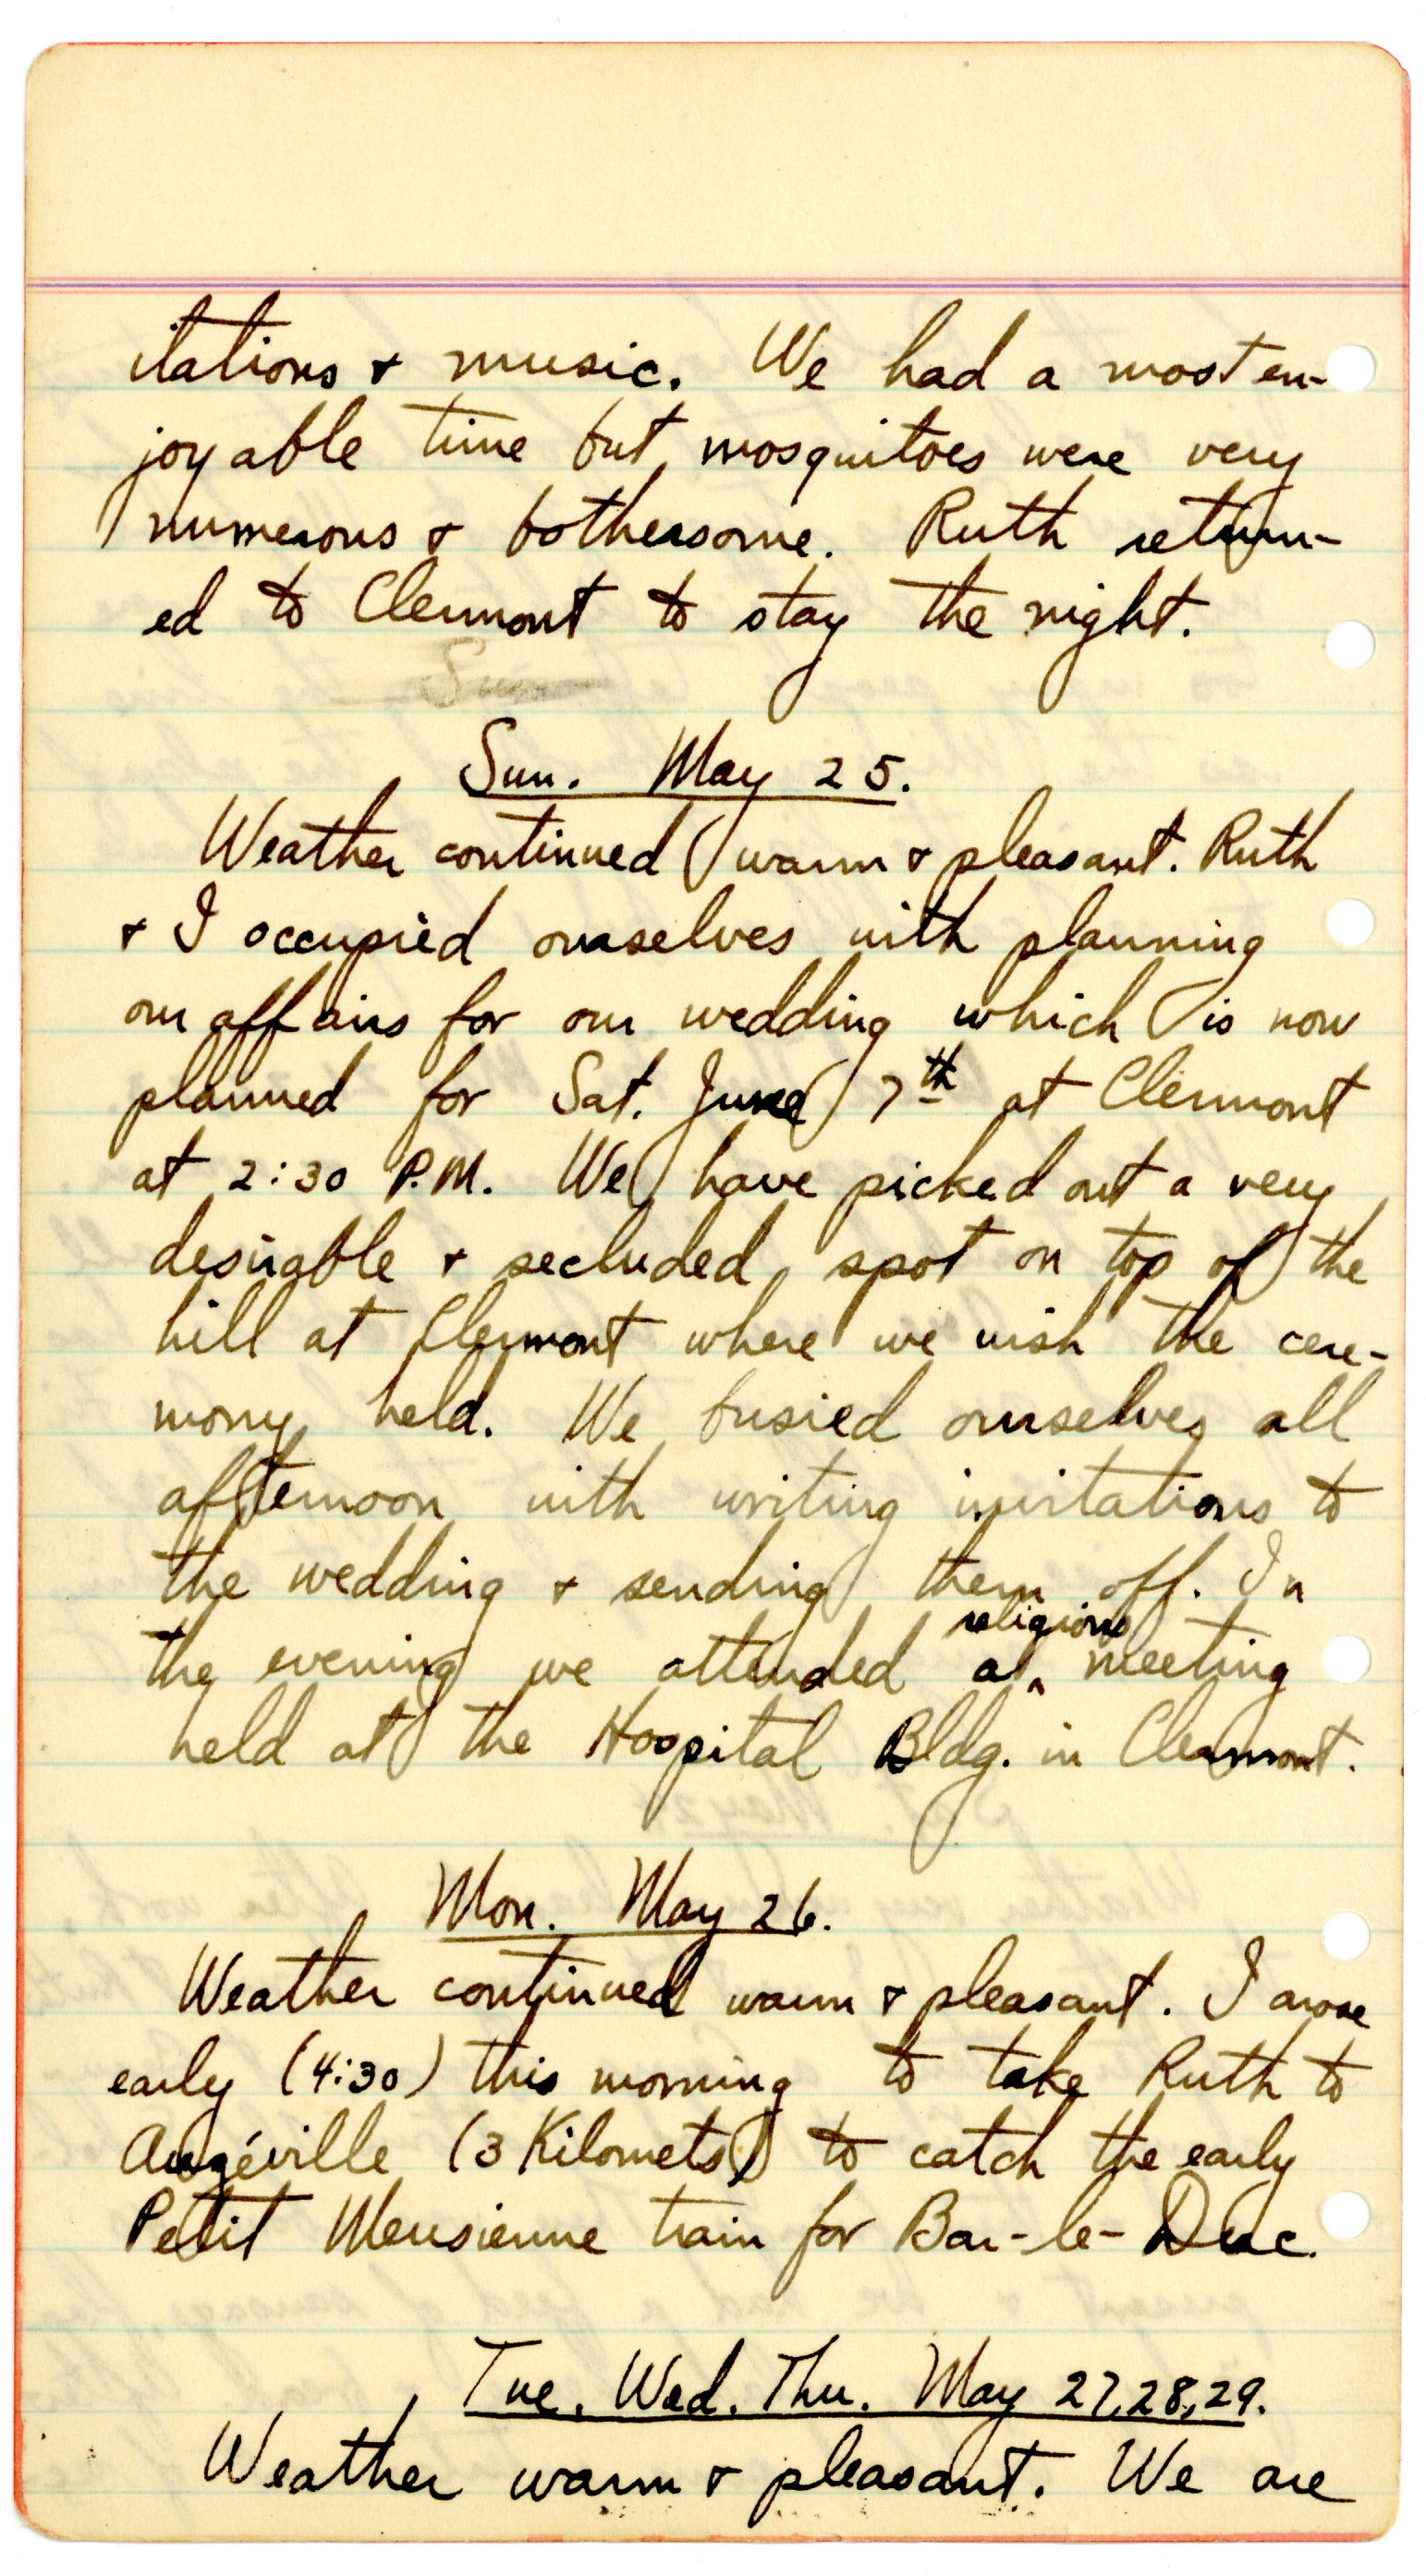 itations & music. We had a most en-
joyable time but mosquitoes were very
numerous & bothersome. Ruth return-
ed to Clermont to stay the night.
Sun
Sun. May 25.
Weather continued warm & pleasant. Ruth
& I occupied ourselves with planning
our affairs for our wedding which is now
planned for Sat. June 7th at Clermont
at 2:30 P.M. We have picked out a very
desirable & secluded spot on top of the
hill at Clermont where we wish the cere-
mony held. We busied ourselves all
afternoon with writing invitations to
the wedding & sending them off. In
the evening we attended a religious meeting
held at the Hospital Bldg. in Clermont.
Mon. May 26.
Weather continued warm & pleasant. I arose
early (4:30) this morning to take Ruth to
Augéville (3 Kilomets) to catch the early
Petit Meusienne train for Bar-le-Duc.
Tue. Wed. Thu. May 27, 28, 29.
Weather warm & pleasant. We are